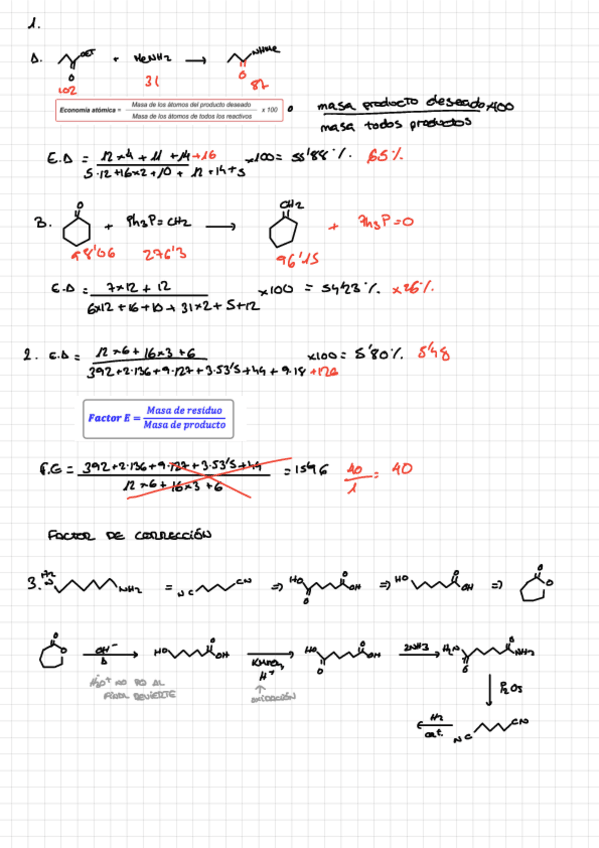 1.
A. OET O + MeNH2 → NHMe O
102 31 87
Economía atómica = Masa de los átomos del producto deseado / Masa de los átomos de todos los reactivos x 100 o masa producto deseado / masa todos productos x100
E.A = 12×4 + 11 + 14 +16 / 5·12+16×2+10 + 12+14+5 ×100 = 55'88 %. 65%
B. O + Ph3P=CH2 → CH2 + Ph3P=O
98'06 276'3 96'15
E.A = 7×12 + 12 / 6×12 +16+10+ 31×2+5+12 ×100 = 54'23 %. ×26%
2. E.A = 12×6 + 16×3 +6 / 392+2·136+9·127+3·53'5+44 + 9·18 +126 ×100 = 5'80 %. 5'48
Factor E = Masa de residuo / Masa de producto
F.G = 392+2·136+9·127+3·53'5+44 / 12×6 + 16×3 +6 = 1546 40/1 = 40
FACTOR DE CORRECCIÓN
3. H2N NH2 = NC CN => HO O O OH => HO O OH => O O
O O OH⁻ Δ → HO O OH KMnO4 H⁺ → HO O O OH 2NH3 → H2N O O NH2
H3O⁺ NO PQ AL FINAL REVIERTE
↑ OXIDACIÓN
P2O5
H2 cat. NC CN